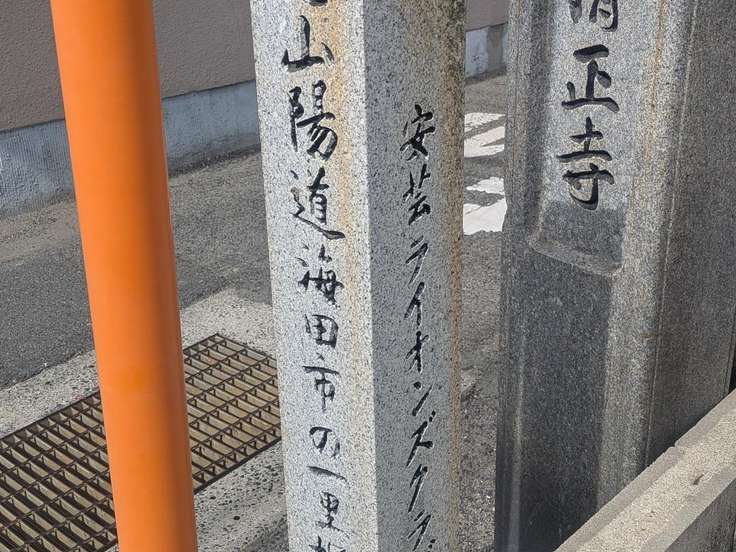 山陽道海田市の一里
安芸ライオンズクラブ
正寺